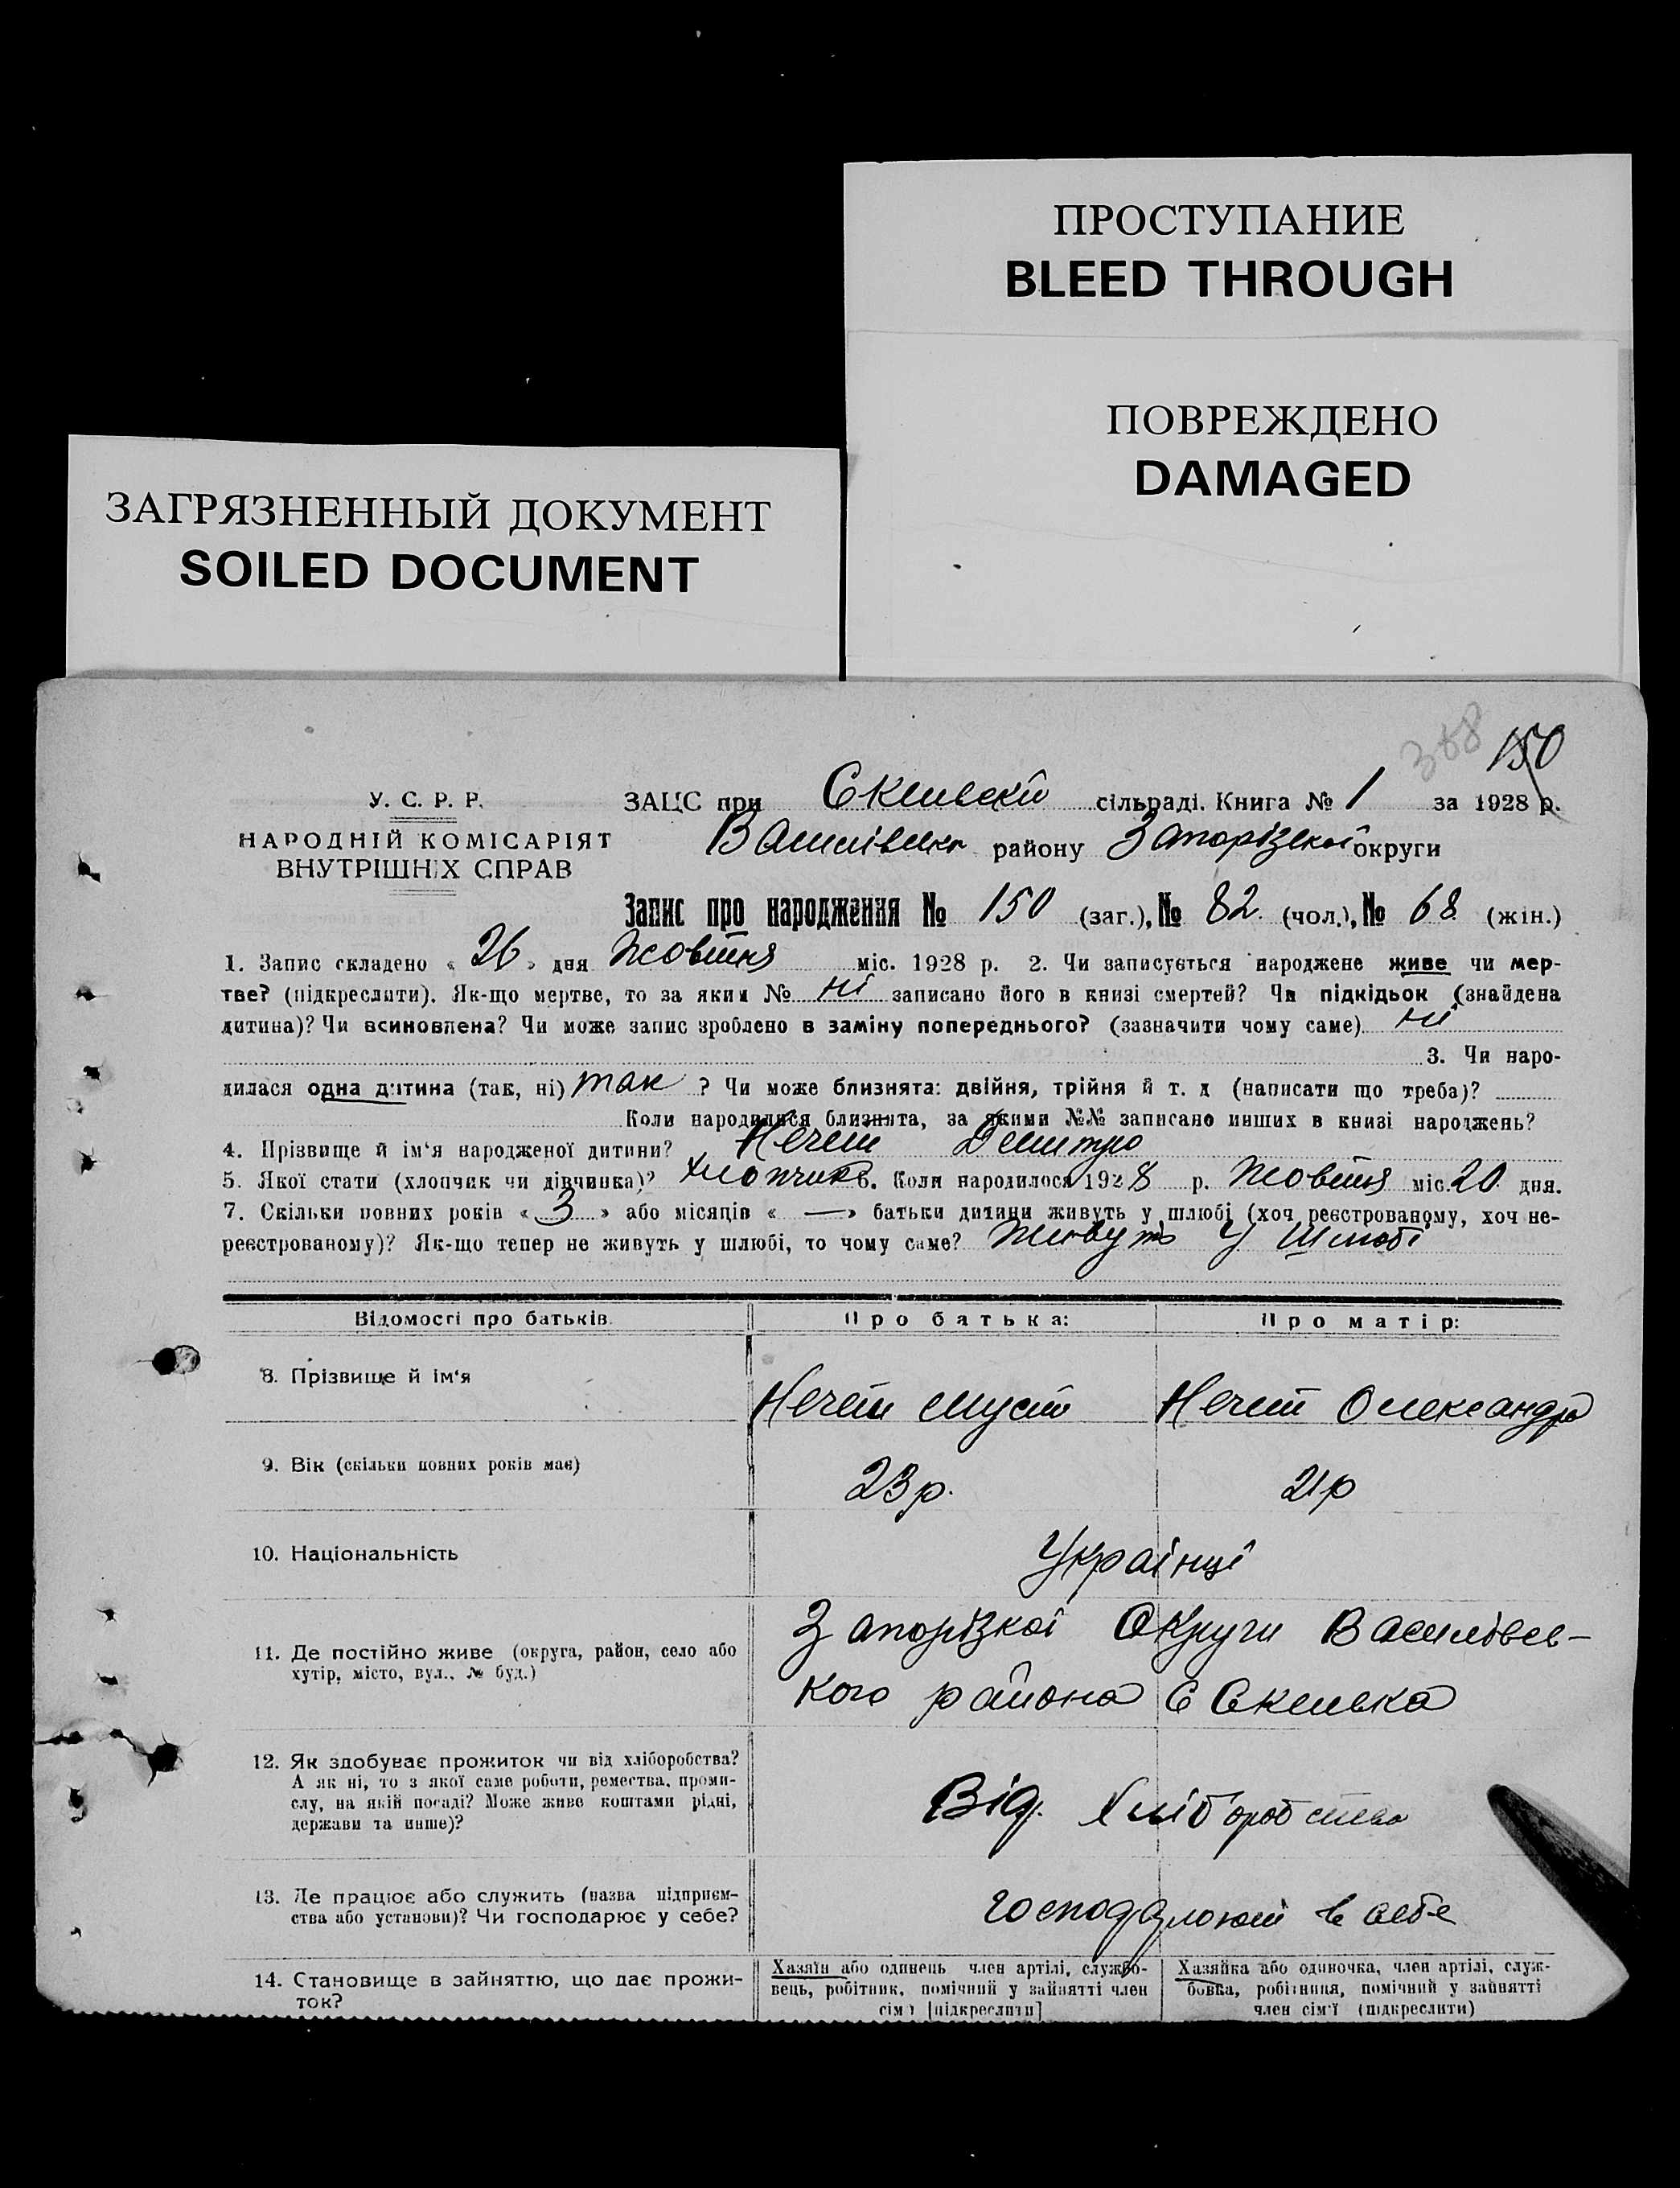 ПРОСТУПАНИЕ
BLEED THROUGH
ПОВРЕЖДЕНО
DAMAGED
ЗАГРЯЗНЕННЫЙ ДОКУМЕНТ
SOILED DOCUMENT
368 150
У. С. Р. Р.
НАРОДНІЙ КОМІСАРІЯТ
ВНУТРІШНІХ СПРАВ
ЗАЦС при сільраді. Книга № 1 за 1928 р.
району Запорізької округи
Запис про народження № 150 (заг.), № 82 (чол.), № 68 (жін.)
1. Запис складено « 26 » дня Жовтня міс. 1928 р. 2. Чи записується народжене живе чи мер-
тве? (підкреслити). Як-що мертве, то за яким № ні записано його в книзі смертей? Чи підкідьок (знайдена
дитина)? Чи всиновлена? Чи може запис зроблено в заміну попереднього? (зазначити чому саме) ні
3. Чи наро-
дилася одна дитина (так, ні) так ? Чи може близнята: двійня, трійня й т. д (написати що треба)?
Коли народилися близнята, за якими №№ записано инших в книзі народжень?
4. Прізвище й ім'я народженої дитини? Нечет Дмитро
5. Якої стати (хлопчик чи дівчинка)? Хлопчик 6. Коли народилося 1928 р. Жовтня міс. 20 дня.
7. Скільки повних років « 3 » або місяців « — » батьки дитини живуть у шлюбі (хоч реєстрованому, хоч не-
реєстрованому)? Як-що тепер не живуть у шлюбі, то чому саме? Живуть У Шлюбі
Відомості про батьків. Про батька: Про матір:
8. Прізвище й ім'я Нечет Нечет Олександра
9. Вік (скільки повних років має) 23 р. 21 р
10. Національність Українці
11. Де постійно живе (округа, район, село або
хутір, місто, вул., № буд.)
Запорізкої Округи Василівсь-
кого района С Скелька
12. Як здобуває прожиток чи від хліборобства?
А як ні, то з якої саме роботи, ремества, проми-
слу, на якій посаді? Може живе коштами рідні,
держави та инше)?
Від. Хліборобства
13. Де працює або служить (назва підприєм-
ства або установи)? Чи господарює у себе?
в себе
14. Становище в зайняттю, що дає прожи-
ток?
Хазяїн або одинець член артілі, службо-
вець, робітник, помічний у зайнятті член
сім'ї [підкреслити]
Хазяйка або одиночка, член артілі, служ-
бовка, робітниця, помічний у зайнятті
член сім'ї (підкреслити)